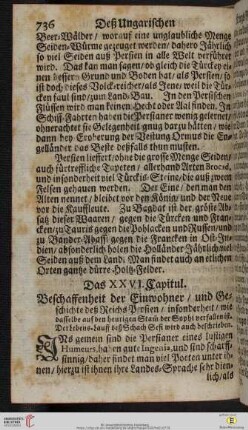 736 Deß Ungarischen
Beer-Wälder / worauf eine unglaubliche Menge
Seiden-Würme gezeuget werden / dahero Jährlich
so viel Seiden auß Persien in alle Welt verführet
wird. Das kan man sagen / ob gleich die Türckey ei-
nen bessern Grund und Boden hat / als Persien / so
ist doch dieses Volckreicher / als Jene / weil die Tür-
cken faul sind / zum Land-Bau. In den Persischen
Flüssen wird man keinen Hecht oder Aal finden. In
Schiff-Fahrten haben die Persianer wenig gelernet /
ohnerachtet sie Gelegenheit gnug darzu hätten / wie
dann bey Eroberung der Vestung Ormus die En-
geländer das Beste deßfalls thun musten.
Persien liefert / ohne die grosse Menge Seiden /
auch fürtreffliche Tapeten / allerhand Arten Brocat,
und insonderheit viel Türckis-Steine / die auß zween
Felsen gehauen werden. Der Eine / den man den
Alten nennet / bleibet vor den König / und der Neue
vor die Kauffleute. Zu Baghdat ist der gröste Ab-
satz dieser Waaren / gegen die Türcken und Fran-
cken / zu Tauris gegen die Pohlacken und Russen / und
zu Bander-Abassi gegen die Francken in Ost-In-
dien / absonderlich holen die Holländer Jährlich viel
Seiden auß dem Land. Man findet auch an etlichen
Orten gantze dürre-Holtz-Felder.
Das XXVI. Capitul.
Beschaffenheit der Einwohner / und Ge-
schichte deß Reichs Persien / insonderheit / wie
dasselbe auf den heutigen Stam der Sophi verfallen ist.
Der Lebens-Lauff deß Schach Sefi wird auch beschrieben.
INs gemein sind die Persianer eines lustigen
Humeurs, haben gute Ingenia, und sind scharff-
sinnig / daher findet man viel Poeten unter ih-
nen / hierzu ist ihnen ihre Landes-Sprache sehr dien-
lich / als